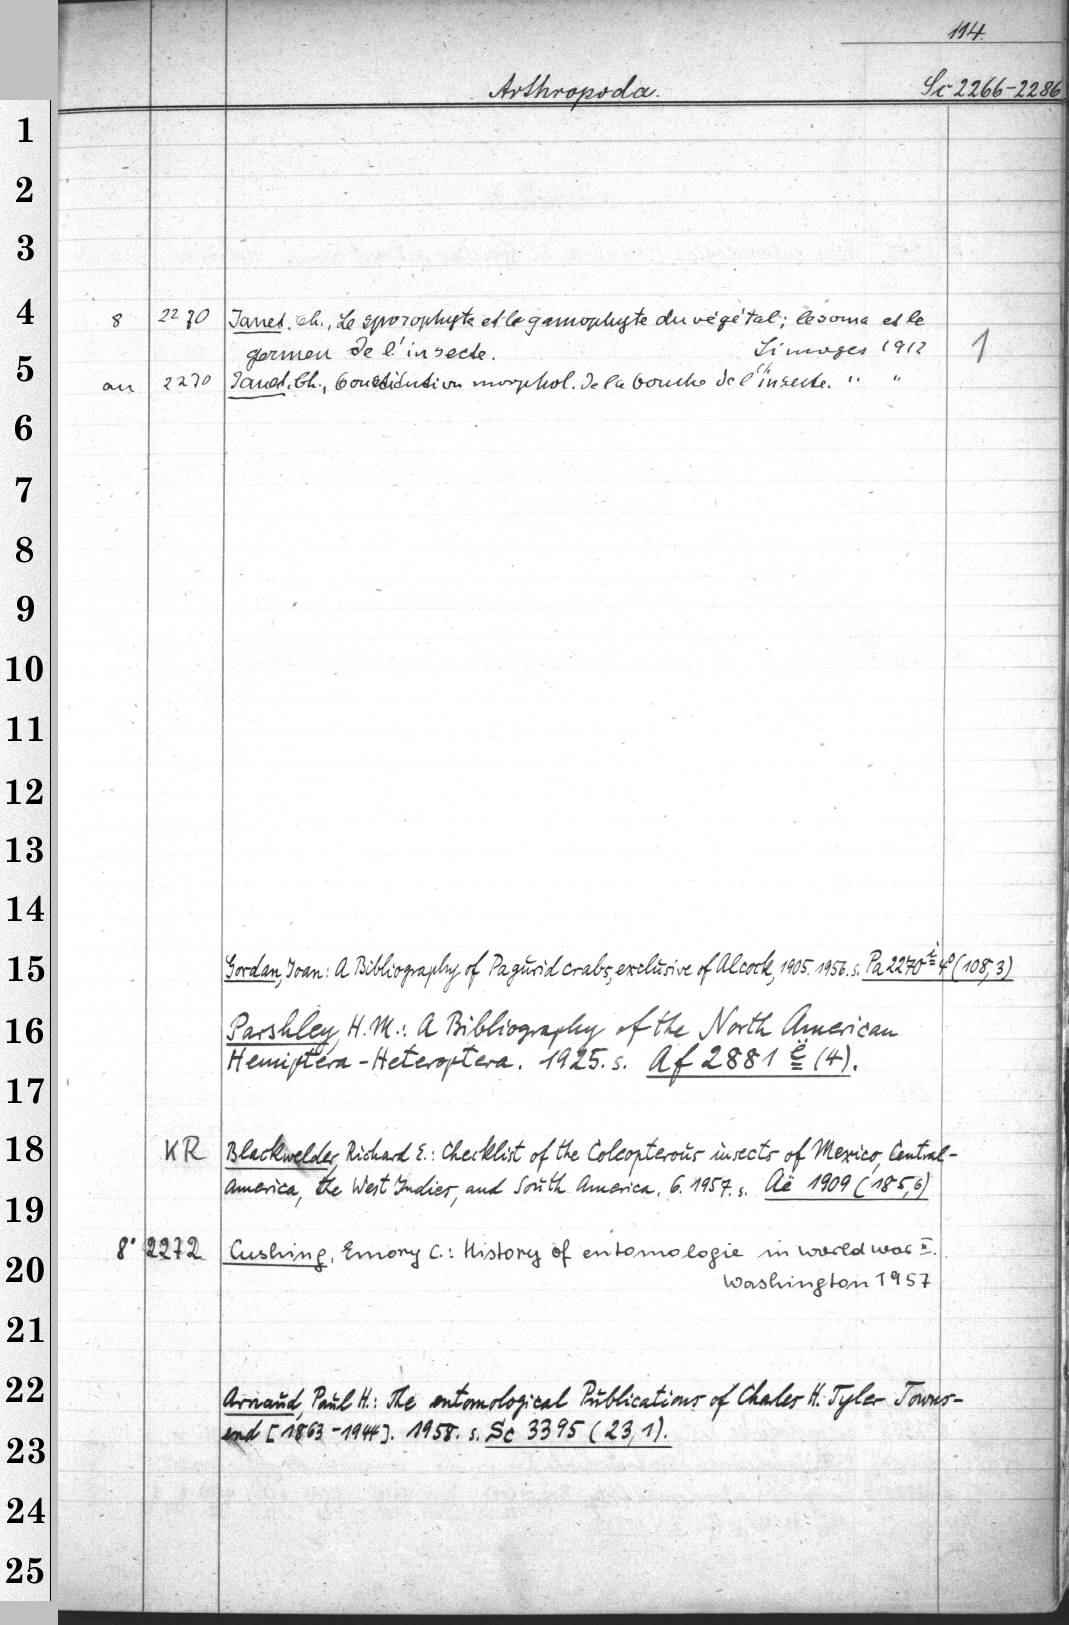 114.
Arthropoda. Sc 2266-2286
1
2
3
4 8 2270 Janet, Ch., Le sporophyte et le gamophyte du végétal; le soma et le
germen de l'insecte. Limoges 1912 1
5 an 2270 Janet, Ch., Constitution morphol. de la bouche de l'insecte. " "
6
7
8
9
10
11
12
13
14
15 Gordan, Joan: A Bibliography of Pagurid crabs, exclusive of Alcock, 1905. 1956. s. Pa 2270 i 4° (108,3)
16 Parshley, H. M.: A Bibliography of the North American
Hemiptera-Heteroptera. 1925. s. Af 2881 ë (4).
17
18 KR Blackwelder, Richard E.: Checklist of the Coleopterous insects of Mexico, Central-
America, the West Indies, and South America. 6. 1957. s. Aë 1909 (185,6)
19
8° 2272 Cushing, Emory C.: History of entomologie in world war II.
20 Washington 1957
21
22 Arnaud, Paul H.: The entomological Publications of Charles H. Tyler Towns-
end [1863-1944]. 1958. s. Sc 3395 (23,1).
23
24
25